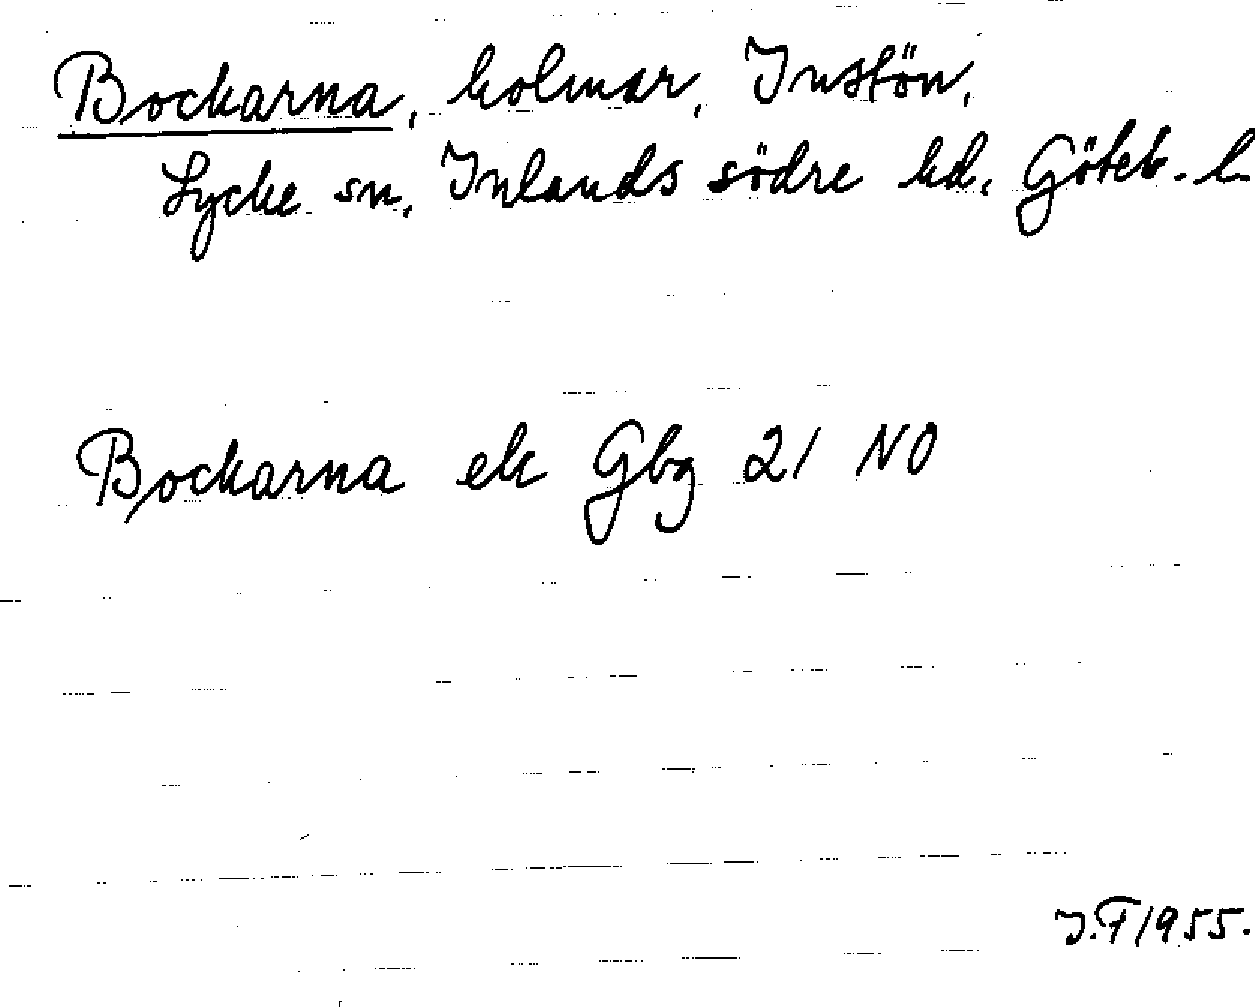 Bockarna, holmar, Instön,
Lycke sn, Inlands södre hd, Göteb. l.
Bockarna ek Gbg 21 NO
I.F 1955.